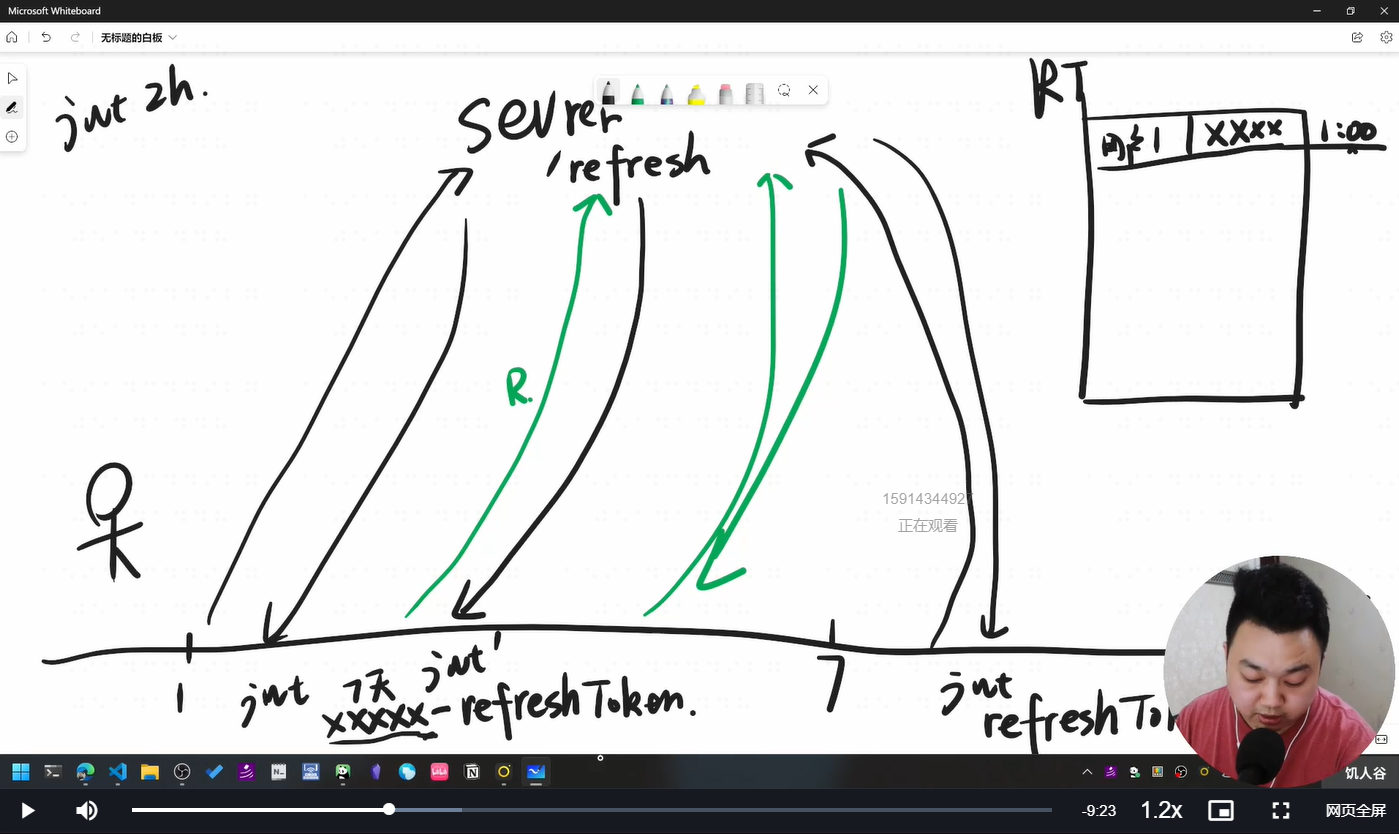 Microsoft Whiteboard
无标题的白板
jwt 2h.
sevrer
/refresh
RT
用户1 xxxx 1:00
R.
15914344927
正在观看
1
jwt
7天
jwt'
xxxxx-refreshToken.
7
jwt
refreshTo
饥人谷
-9:23
1.2x
网页全屏